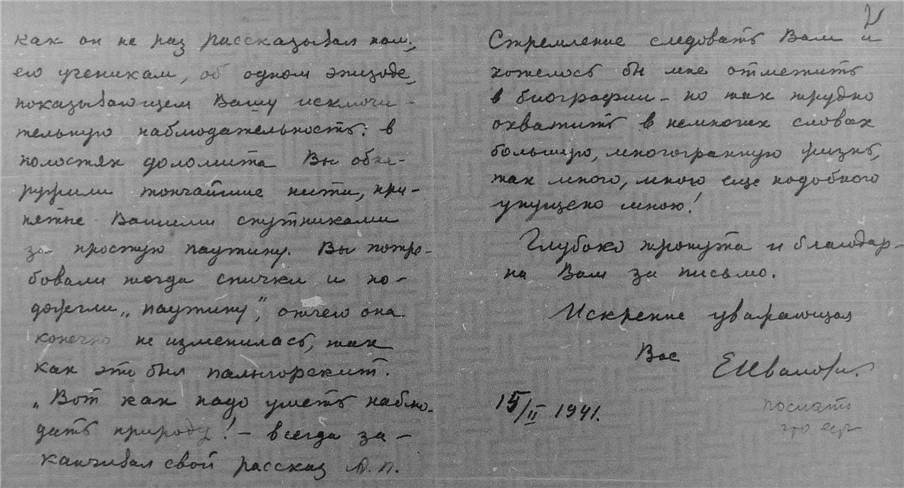 как он не раз рассказывал нам,
его ученикам, об одном эпизоде,
показывающем Вашу исключи-
тельную наблюдательность: в
полостях доломита Вы обна-
ружили тончайшие нити, при-
нятые Вашими спутниками
за простую паутину. Вы потре-
бовали тогда спички и по-
дожгли „паутину", отчего она
конечно не изменилась, так
как это был палыгорскит.
„Вот как надо уметь наблю-
дать природу! – всегда за-
канчивал свой рассказ А.П.
2
Стремление следовать Вам и
хотелось бы мне отметить
в биографии – но так трудно
охватить в немногих словах
большую, многогранную жизнь,
так много, много еще подобного
упущено мною!
Глубоко тронута и благодар-
на Вам за письмо.
Искренне уважающая
Вас
15/II 1941.
послать